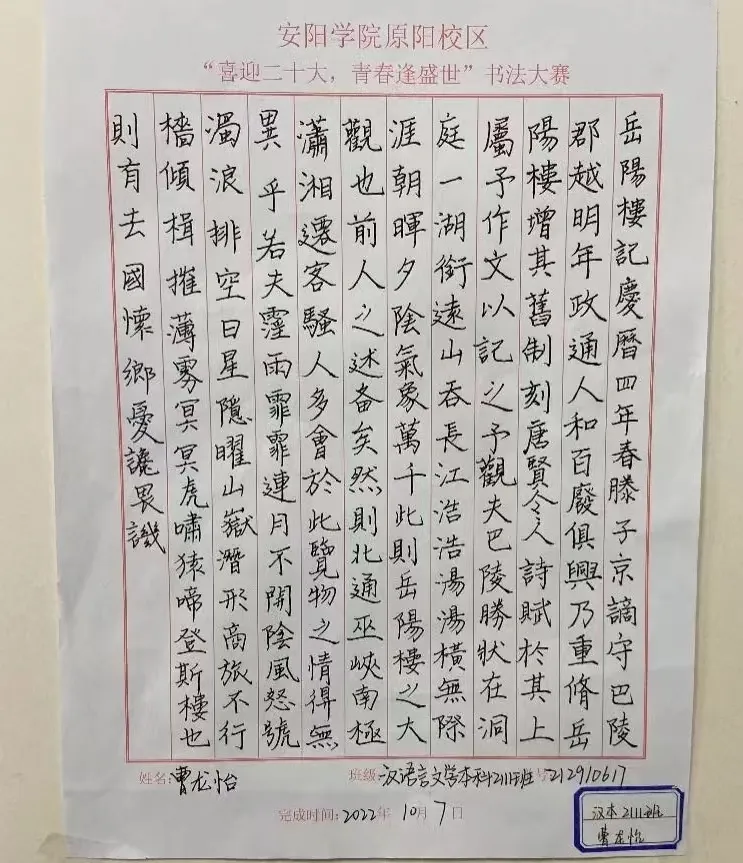 安阳学院原阳校区
“喜迎二十大，青春逢盛世”书法大赛
岳陽樓記慶曆四年春滕子京謫守巴陵
郡越明年政通人和百廢俱興乃重脩岳
陽樓增其舊制刻唐賢今人詩賦於其上
屬予作文以記之予觀夫巴陵勝狀在洞
庭一湖銜遠山吞長江浩浩湯湯橫無際
涯朝暉夕陰氣象萬千此則岳陽樓之大
觀也前人之述备矣然則北通巫峽南極
瀟湘遷客騷人多會於此覽物之情得無
異乎若夫霪雨霏霏連月不開陰風怒號
濁浪排空日星隱曜山嶽潛形商旅不行
檣傾楫摧薄雾冥冥虎嘯猿啼登斯樓也
則有去國懷鄉憂讒畏譏
姓名：曹龙怡 班级：汉语言文学本科2111班 号：212910617
完成时间：2022年10月7日
汉本2111班
曹龙怡